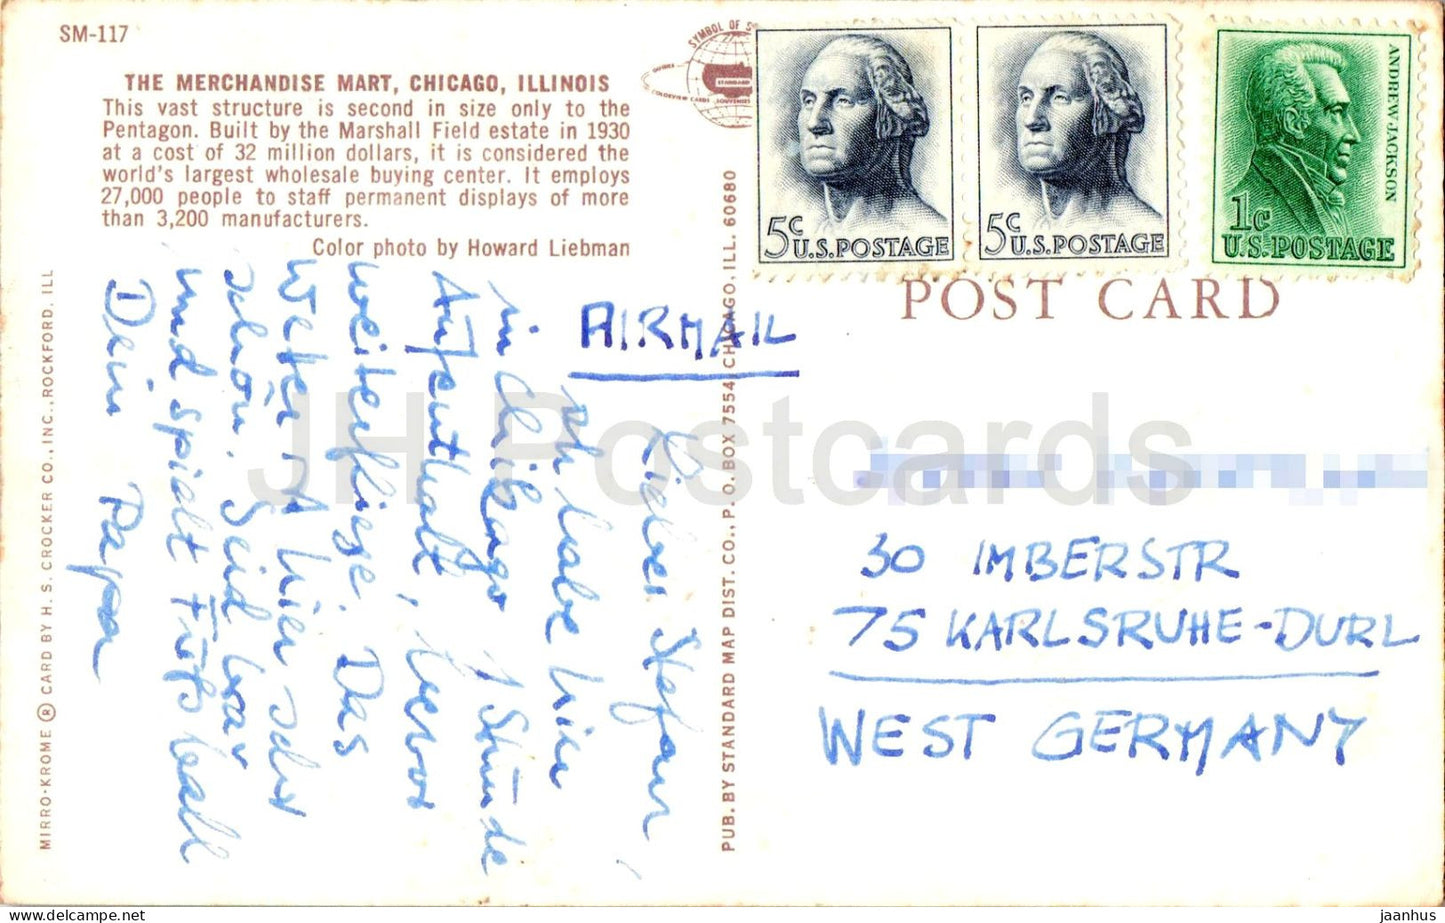 SM-117
THE MERCHANDISE MART, CHICAGO, ILLINOIS
This vast structure is second in size only to the
Pentagon. Built by the Marshall Field estate in 1930
at a cost of 32 million dollars, it is considered the
world's largest wholesale buying center. It employs
27,000 people to staff permanent displays of more
than 3,200 manufacturers.
Color photo by Howard Liebman
SYMBOL OF
STANDARD
COLORVIEW CARDS SOUVENIRS
5c U.S. POSTAGE
5c U.S. POSTAGE
ANDREW JACKSON
1c
U.S. POSTAGE
POST CARD
AIRMAIL
Lieber Stefan,
Ich habe hier
in Chikago 1 Stunde
Aufenthalt, bevor
weiterfliege. Das
Wetter ist hier sehr
schön. Seid brav
und spielt Fußball
Dein Papa
30 IMBERSTR
75 KARLSRUHE-DURL
WEST GERMANY
MIRRO-KROME ® CARD BY H. S. CROCKER CO., INC., ROCKFORD, ILL
PUB. BY STANDARD MAP DIST. CO., P. O. BOX 7554, CHICAGO, ILL. 60680
JH Postcards
www.delcampe.net
jaanhus